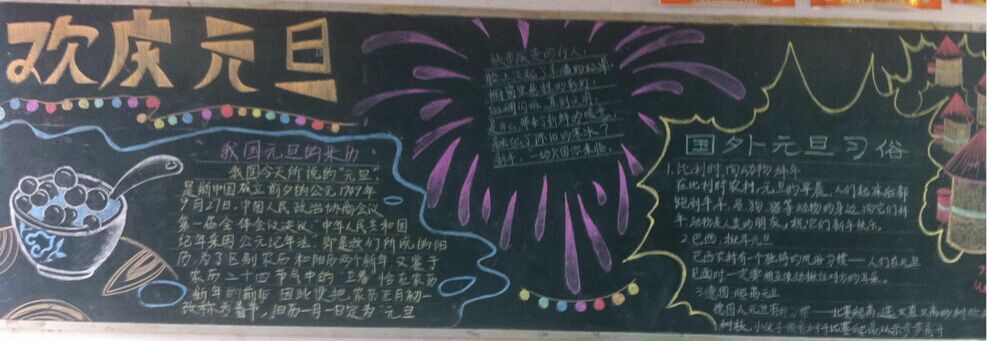 欢庆元旦
我国元旦的来历
我国今天所说的“元旦”
是新中国成立前夕的公元1949年
9月27日，中国人民政治协商会议
第一届全体会议决议：“中华人民共和国
纪年采用公元纪年法”，即是我们所说的阳
历，为了区别农历和阳历两个新年，又鉴于
农历二十四节气中的“立春”恰在农历
新年的前后，因此便把农历正月初一
改称为春节，阳历一月一日定为“元旦
快步疾走的行人，
一切
国外元旦习俗
1.比利时：向动物拜年
在比利时农村，元旦的早晨，人们起来后都
跑到牛、羊、马、狗、猫等动物的身边，向它们拜
年，动物是人类的朋友，祝它们新年快乐。
2.巴西：揪耳元旦
巴西农村有个独特的风俗习惯——人们在元旦
见面时一定要相互使劲揪住对方的耳朵。
3.德国：爬高元旦
德国人元旦有 ——比赛爬高，选又直又高的树
树枝，小伙子